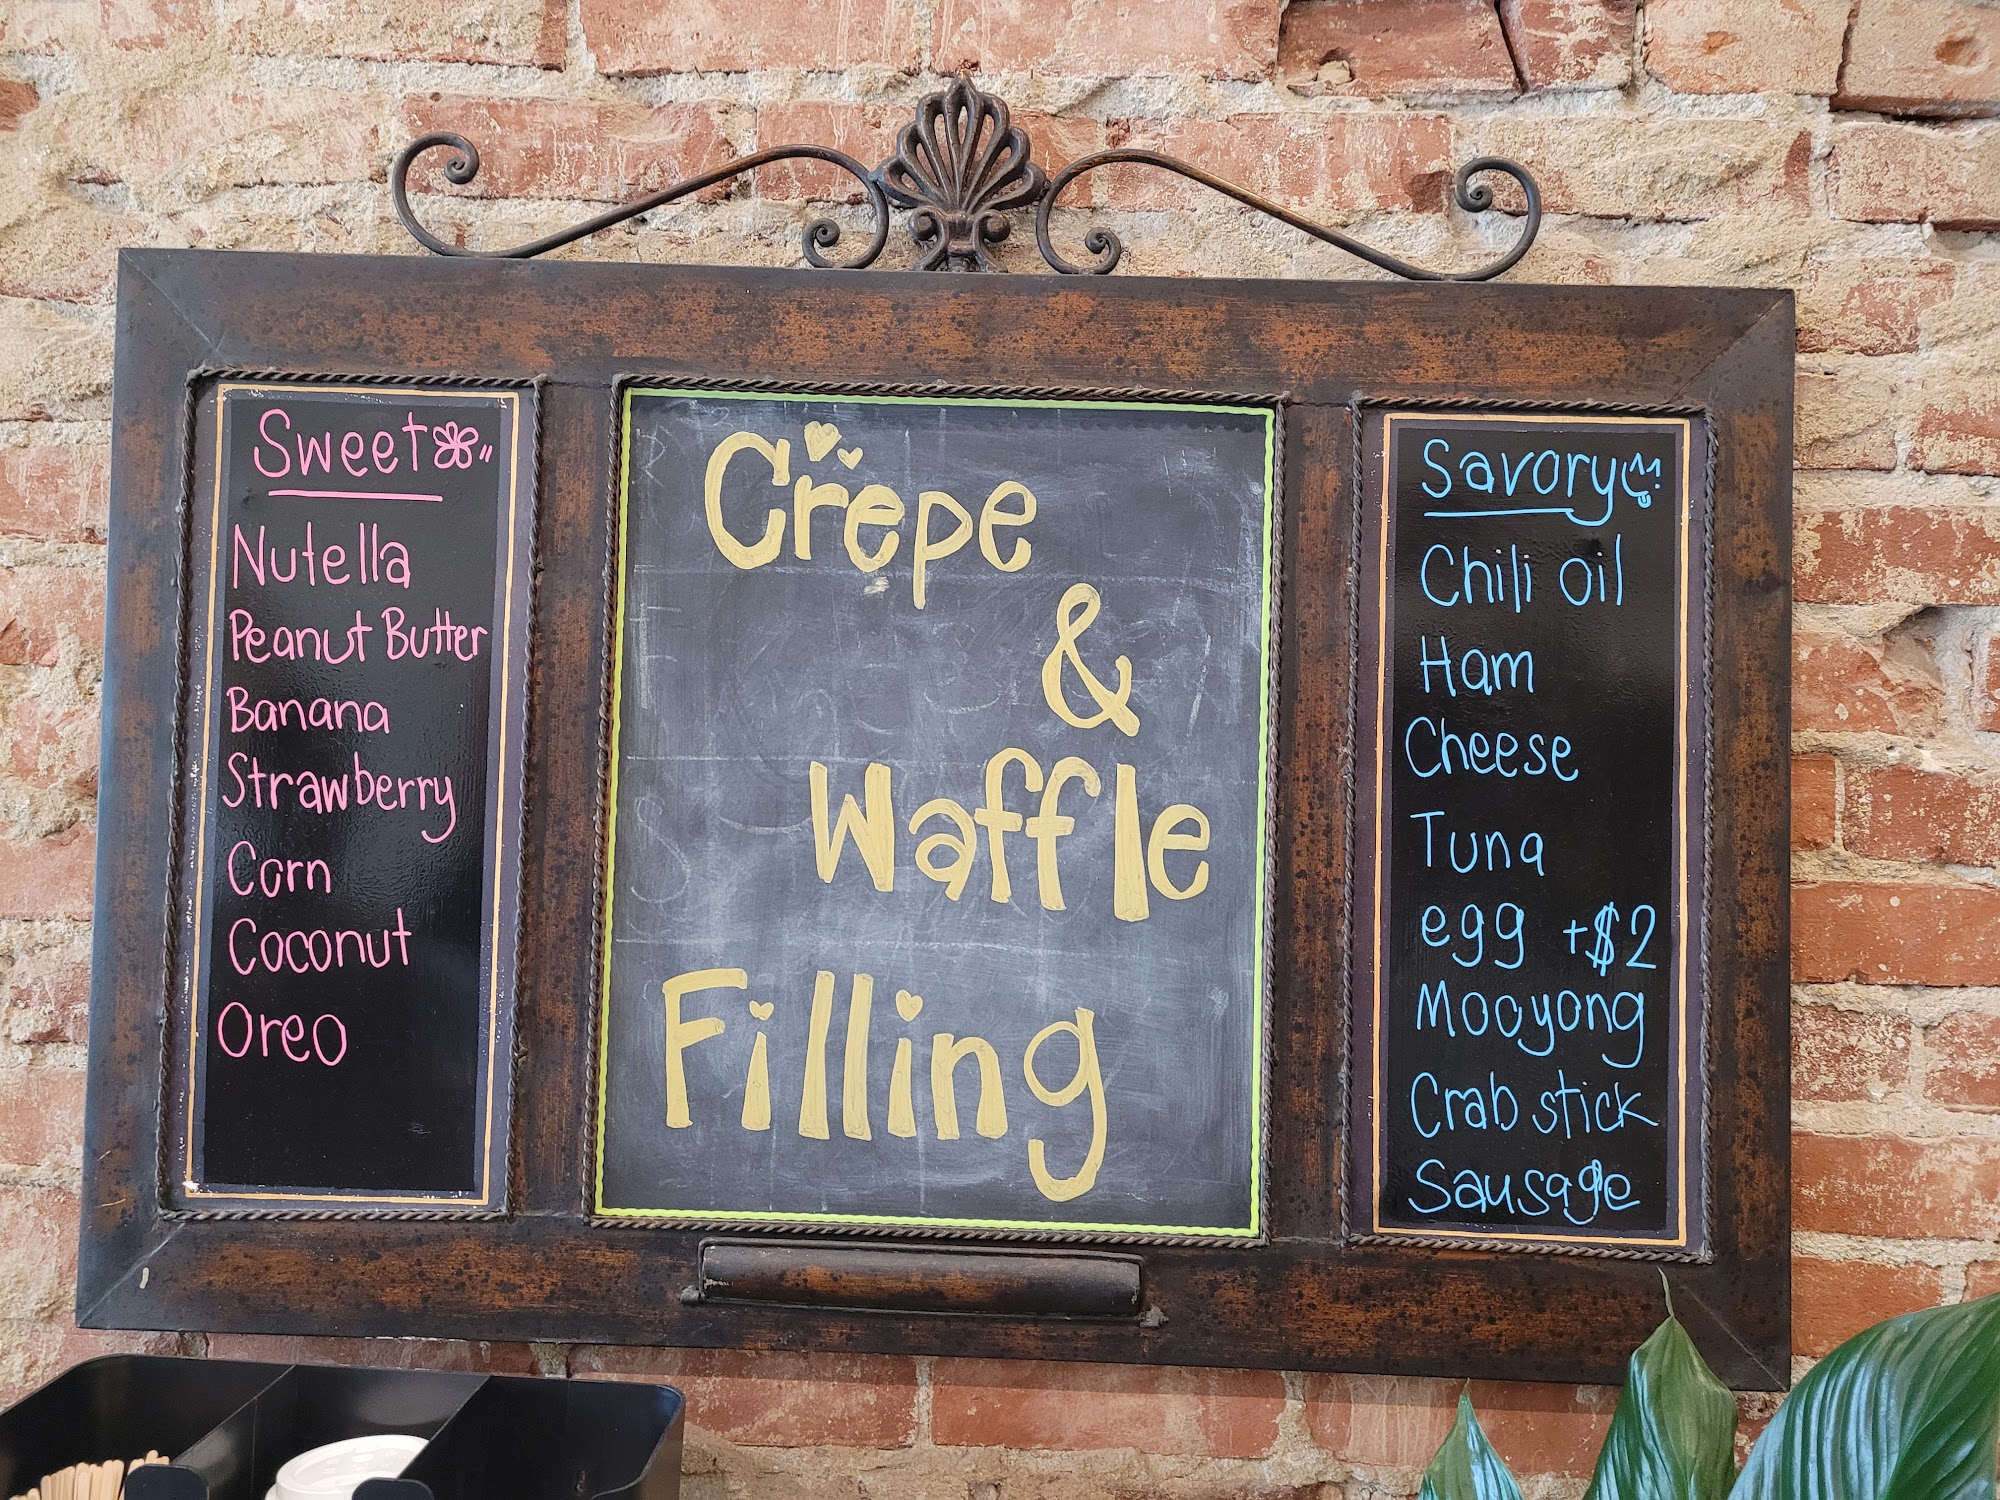 Sweet
Nutella
Peanut Butter
Banana
Strawberry
Corn
Coconut
Oreo
Crepe
&
Waffle
Filling
Savory
Chili Oil
Ham
Cheese
Tuna
egg +$2
Mooyong
Crab stick
Sausage